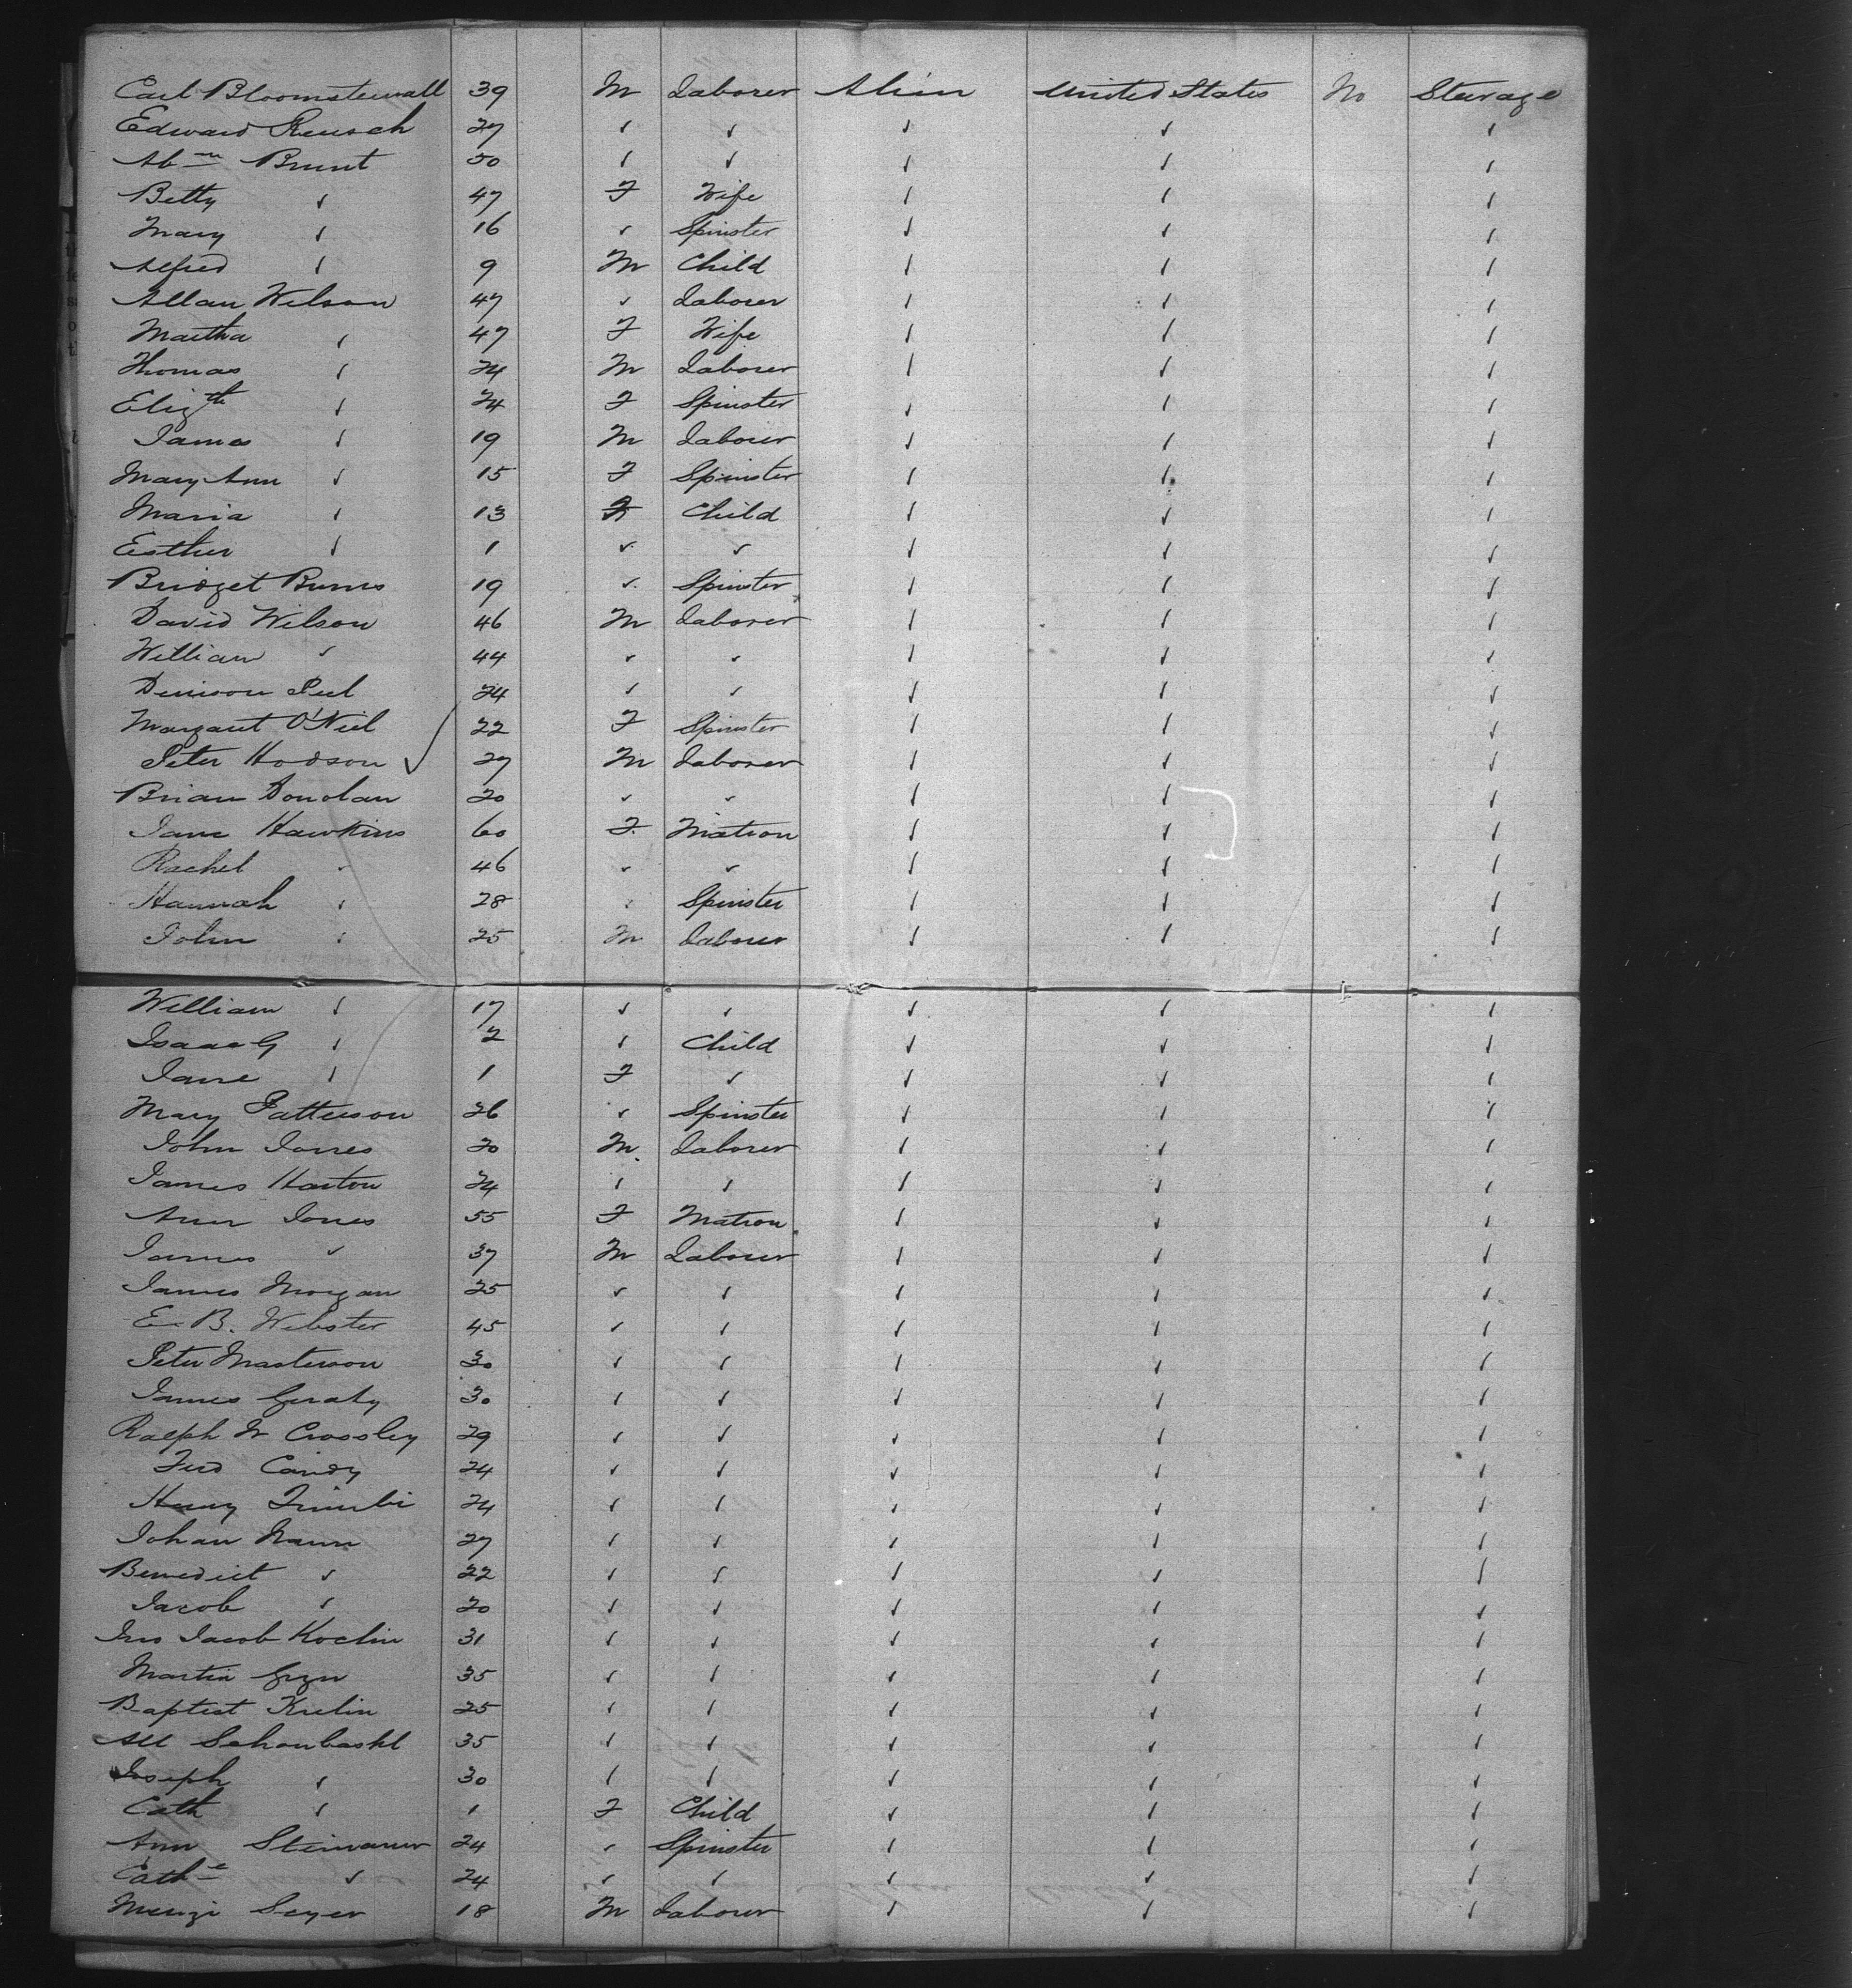 Carl Bloomsterwall 39 M Laborer Alien United States No Steerage
Edward Reusch 27 ✓ ✓ ✓ ✓ ✓
Abm Brunt 50 ✓ ✓ ✓ ✓ ✓
Betty ✓ 47 F Wife ✓ ✓ ✓
Mary ✓ 16 ✓ Spinster ✓ ✓ ✓
Alfred ✓ 9 M Child ✓ ✓ ✓
Allan Wilson 47 ✓ Laborer ✓ ✓ ✓
Martha ✓ 47 F Wife ✓ ✓ ✓
Thomas ✓ 24 M Laborer ✓ ✓ ✓
Elizth ✓ 24 F Spinster ✓ ✓ ✓
James ✓ 19 M Laborer ✓ ✓ ✓
Mary Ann ✓ 15 F Spinster ✓ ✓ ✓
Maria ✓ 13 F Child ✓ ✓ ✓
Esther ✓ 1 ✓ ✓ ✓ ✓ ✓
Bridget Burns 19 ✓ Spinster ✓ ✓ ✓
David Wilson 46 M Laborer ✓ ✓ ✓
William ✓ 44 ✓ ✓ ✓ ✓ ✓
Denison Peel 24 ✓ ✓ ✓ ✓ ✓
Margaret O'Neil 22 F Spinster ✓ ✓ ✓
Peter Hodson ✓ 27 M Laborer ✓ ✓ ✓
Brian Donolan 20 ✓ ✓ ✓ ✓ ✓
Jane Hawkins 60 F. Matron ✓ ✓ ✓
Rachel ✓ 46 ✓ ✓ ✓ ✓ ✓
Hannah ✓ 28 ✓ Spinster ✓ ✓ ✓
John ✓ 25 M Laborer ✓ ✓ ✓
William ✓ 17 ✓ ✓ ✓ ✓ ✓
Isaac G ✓ 2 ✓ Child ✓ ✓ ✓
Jane ✓ 1 F ✓ ✓ ✓ ✓
Mary Patterson 26 ✓ Spinster ✓ ✓ ✓
John Jones 20 M. Laborer ✓ ✓ ✓
James Harton 24 ✓ ✓ ✓ ✓ ✓
Ann Jones 55 F Matron ✓ ✓ ✓
James ✓ 37 M Laborer ✓ ✓ ✓
James Morgan 25 ✓ ✓ ✓ ✓ ✓
E. B. Webster 45 ✓ ✓ ✓ ✓ ✓
Peter Masterson 30 ✓ ✓ ✓ ✓ ✓
James Geraty 30 ✓ ✓ ✓ ✓ ✓
Ralph W Crossley 29 ✓ ✓ ✓ ✓ ✓
Fred Candy 24 ✓ ✓ ✓ ✓ ✓
Henry 24 ✓ ✓ ✓ ✓ ✓
Johan Nann 27 ✓ ✓ ✓ ✓ ✓
Benedict ✓ 22 ✓ ✓ ✓ ✓ ✓
Jacob ✓ 20 ✓ ✓ ✓ ✓ ✓
Jno Jacob Koclin 31 ✓ ✓ ✓ ✓ ✓
Martin 35 ✓ ✓ ✓ ✓ ✓
Baptist Krelin 25 ✓ ✓ ✓ ✓ ✓
All Schonbaskl 35 ✓ ✓ ✓ ✓ ✓
Joseph ✓ 30 ✓ ✓ ✓ ✓ ✓
Cath ✓ 1 F Child ✓ ✓ ✓
Ann Steinauer 24 ✓ Spinster ✓ ✓ ✓
Cathe ✓ 24 ✓ ✓ ✓ ✓ ✓
Menzi Seyer 18 M Laborer ✓ ✓ ✓